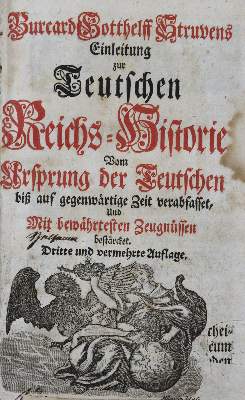 Burcard Gotthelff Struvens
Einleitung
zur
Teutschen
Reichs-Historie
Vom
Ursprung der Teutschen
biß auf gegenwärtige Zeit verabfasset,
Und
Mit bewährtesten Zeugnüssen
bestärcket.
Dritte und vermehrte Auflage.